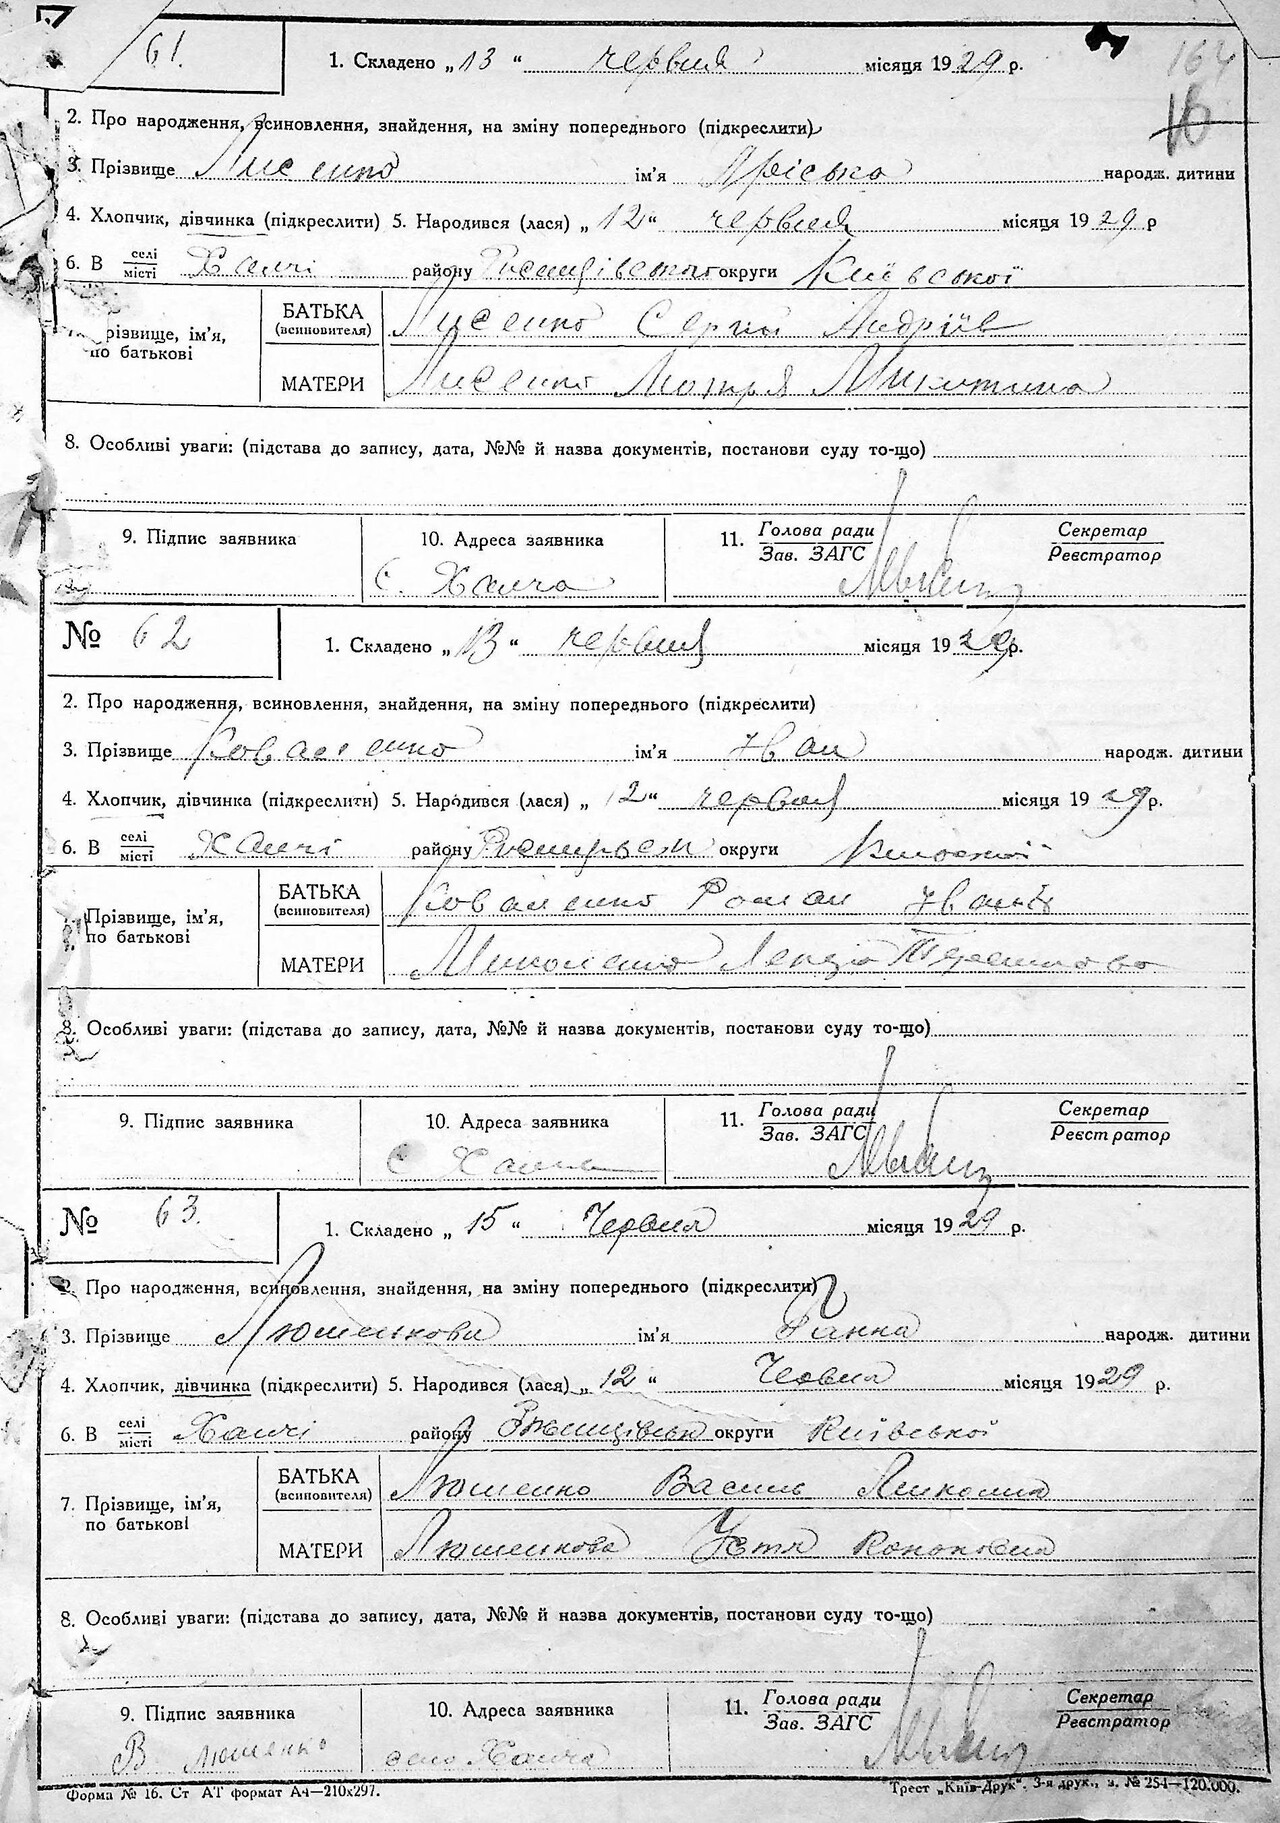 61. 1. Складено „13 “ червня місяця 1929 р. 164
16
2. Про народження, всиновлення, знайдення, на зміну попереднього (підкреслити)
3. Прізвище Лисенко ім'я Пріська народж. дитини
4. Хлопчик, дівчинка (підкреслити) 5. Народився (лася) „ 12 “ червня місяця 1929 р
6. В селі/місті Халчі району округи Київської
прізвище, ім'я, по батькові БАТЬКА (всиновителя) Лисенко Сергій Андріїв
МАТЕРИ Лисенко Мотря Микитина
8. Особливі уваги: (підстава до запису, дата, №№ й назва документів, постанови суду то-що)
9. Підпис заявника 10. Адреса заявника 11. Голова ради/Зав. ЗАГС Секретар/Реєстратор
с. Халча
№ 62 1. Складено „ 13 “ червня місяця 1929 р.
2. Про народження, всиновлення, знайдення, на зміну попереднього (підкреслити)
3. Прізвище Коваленко ім'я Іван народж. дитини
4. Хлопчик, дівчинка (підкреслити) 5. Народився (лася) „ 12 “ червня місяця 1929 р.
6. В селі/місті Халчі району округи Київської
7. Прізвище, ім'я, по батькові БАТЬКА (всиновителя) Коваленко Роман Іванів
МАТЕРИ Миколенко
8. Особливі уваги: (підстава до запису, дата, №№ й назва документів, постанови суду то-що)
9. Підпис заявника 10. Адреса заявника 11. Голова ради/Зав. ЗАГС Секретар/Реєстратор
с Халча
№ 63. 1. Складено „ 15 “ Червня місяця 1929 р.
2. Про народження, всиновлення, знайдення, на зміну попереднього (підкреслити)
3. Прізвище Люшенкова ім'я Ганна народж. дитини
4. Хлопчик, дівчинка (підкреслити) 5. Народився (лася) „ 12 “ Червня місяця 1929 р.
6. В селі/місті Халчі району округи Київської
7. Прізвище, ім'я, по батькові БАТЬКА (всиновителя) Люшенко Василь
МАТЕРИ Люшенкова Устя Кононовна
8. Особливі уваги: (підстава до запису, дата, №№ й назва документів, постанови суду то-що)
9. Підпис заявника 10. Адреса заявника 11. Голова ради/Зав. ЗАГС Секретар/Реєстратор
В Люшенко село Халча
Форма № 16. Ст АТ формат А4—210х297. Трест „Київ-Друк“. 3-я друк., з. № 254—120.000.